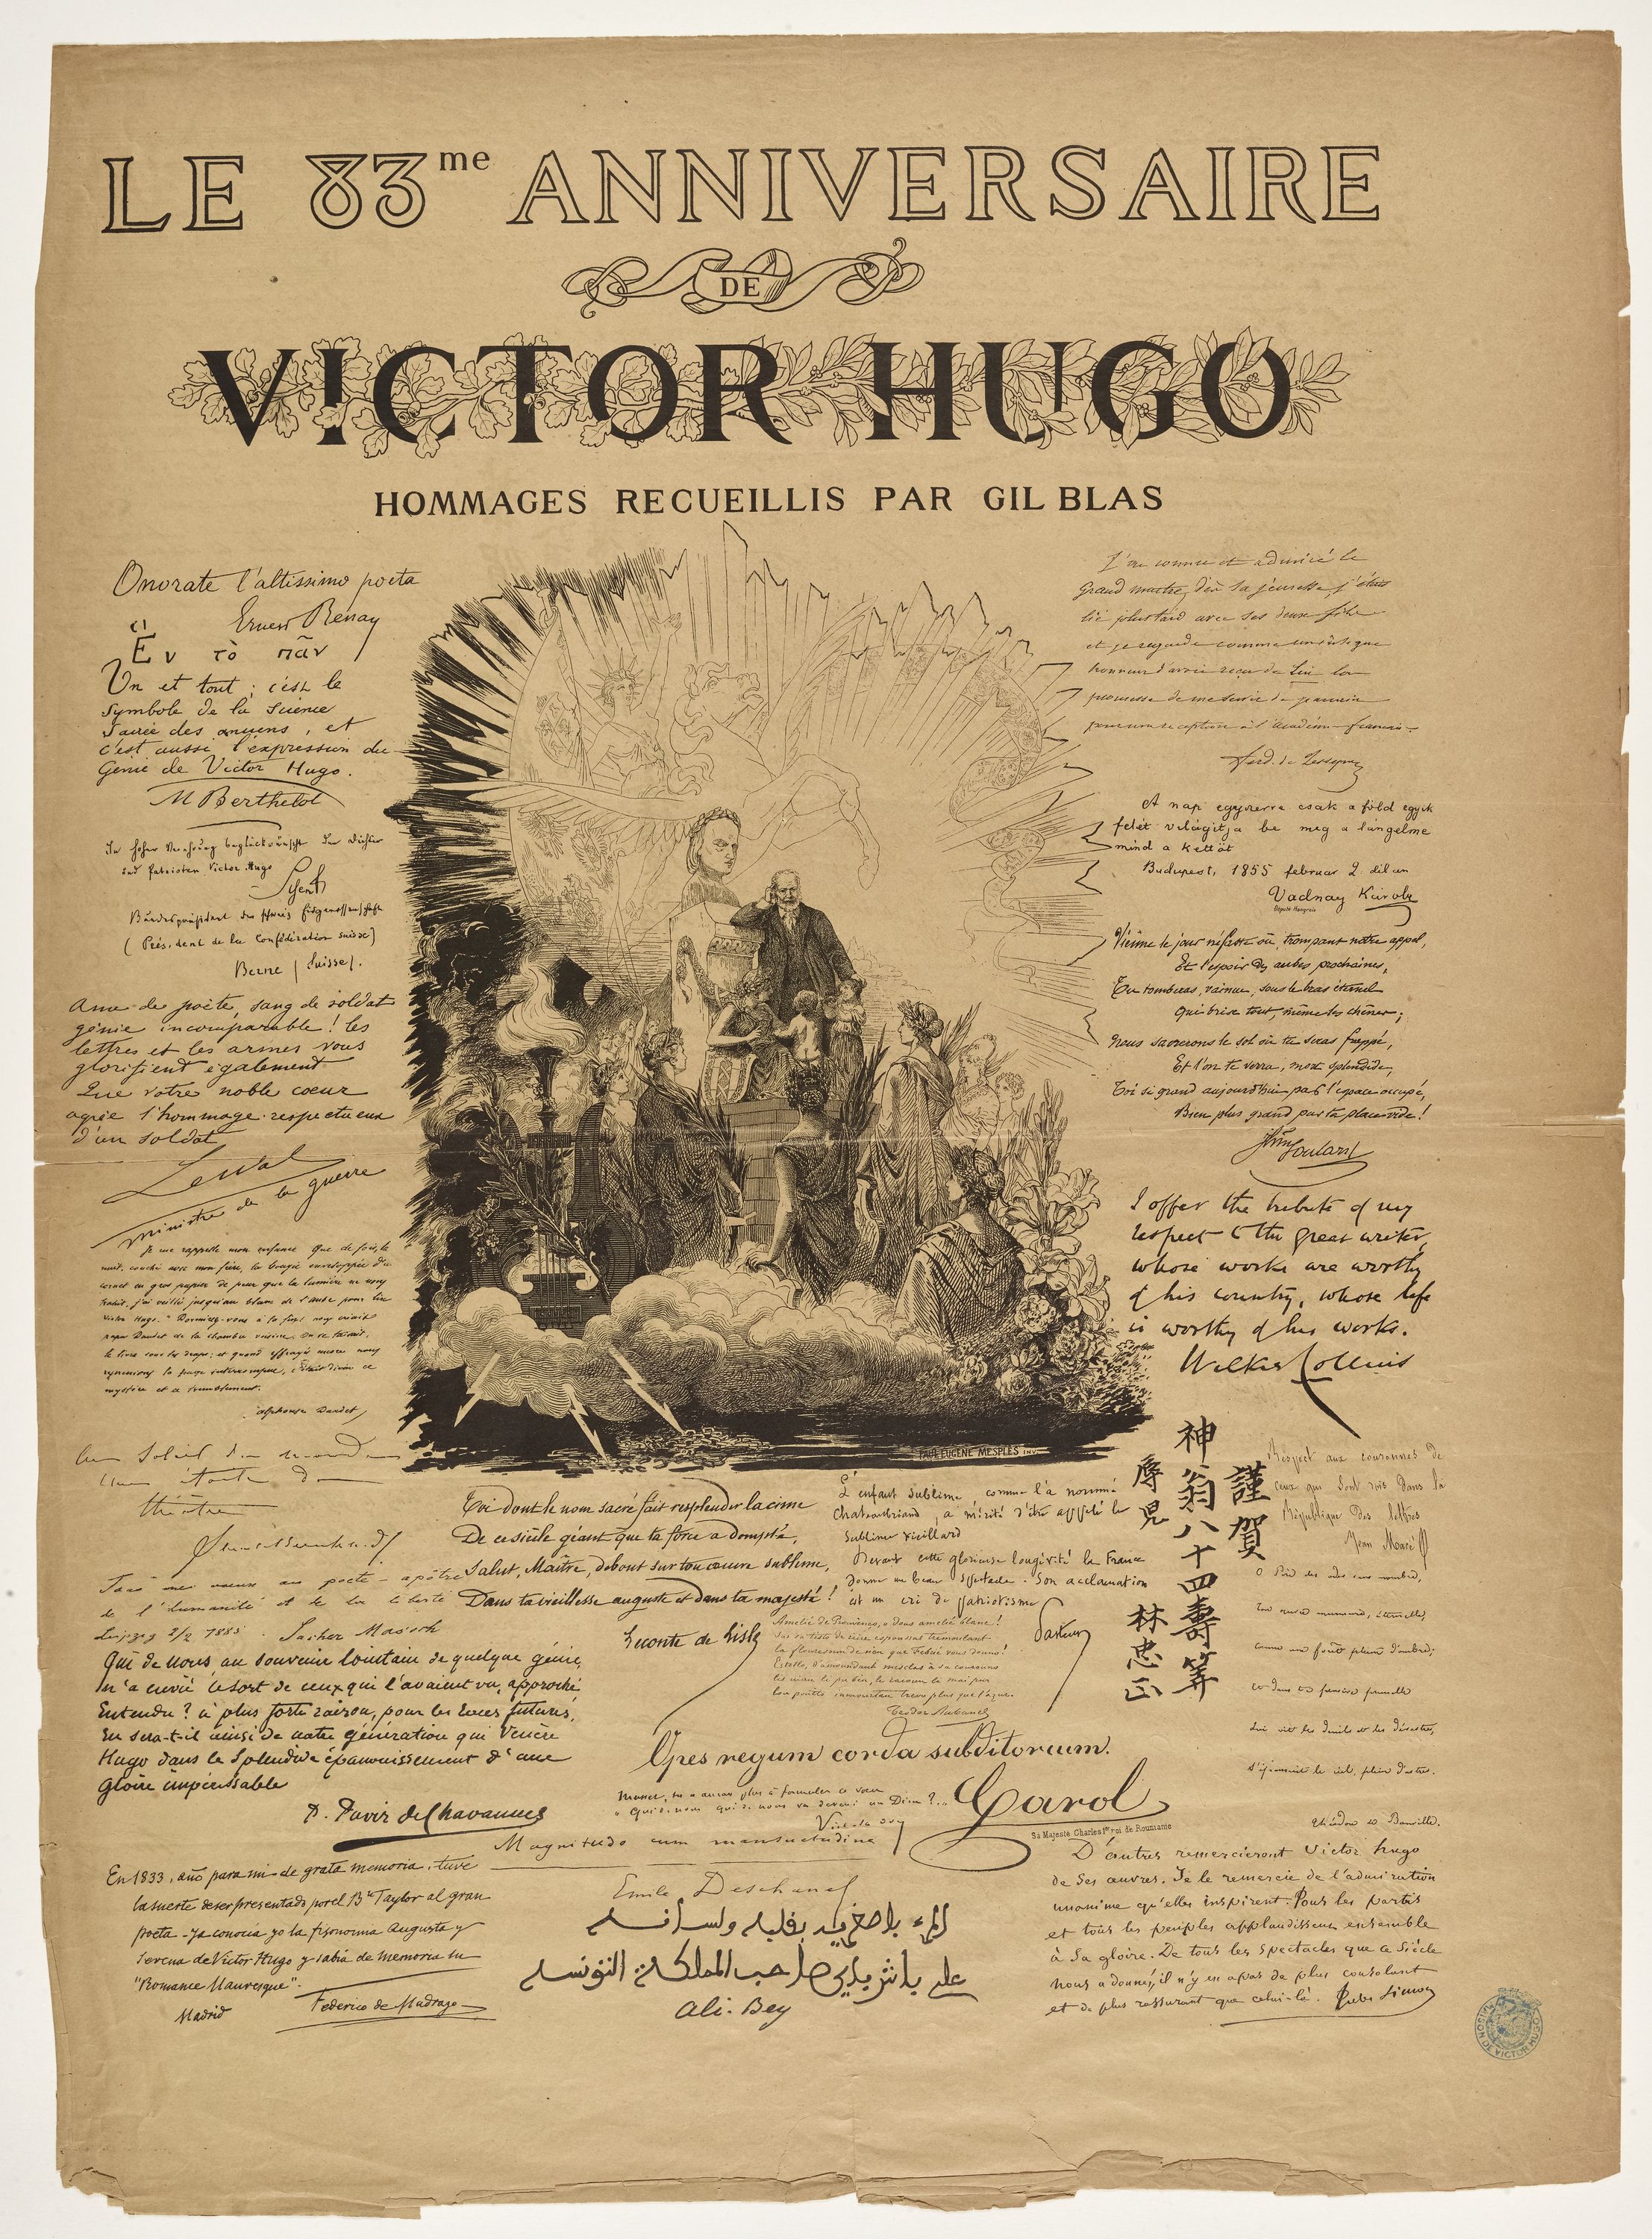 LE 83me ANNIVERSAIRE
DE
VICTOR HUGO
HOMMAGES RECUEILLIS PAR GIL BLAS
Onorate l'altissimo poeta
Ernest Renan
Ἓν τὸ πᾶν
Un et tout ; c'est le
symbole de la science
sacrée des anciens, et
c'est aussi l'expression du
Génie de Victor Hugo.
M Berthelot
In hoher Verehrung beglückwünscht den Dichter
und Patrioten Victor Hugo
Schenk
Bundespräsident der schweiz Eidgenossenschaft
(Président de la Confédération suisse)
Berne (Suisse).
Ame de poète, sang de soldat
génie incomparable ! les
lettres et les armes vous
glorifient également
Que votre noble cœur
agrée l'hommage respectueux
d'un soldat
Lewal
ministre de la guerre
Je me rappelle mon enfance que de fois, la
nuit, couché avec mon frère, la bougie enveloppée d'un
cornet en gros papier de peur que la lumière ne nous
trahît, j'ai veillé jusqu'au blanc de l'aube pour lire
Victor Hugo. "Dormirez-vous à la fin! nous criait
papa Daudet de la chambre voisine. On se taisait,
le livre sous les draps; et quand effrayés encore nous
reprenions la page interrompue, c'était divin ce
mystère et ce tremblement.
Alphonse Daudet
Au Soleil du monde
Une étoile du
théâtre
Sarah Bernhardt
Tous mes vœux au poète-apôtre
de l'humanité et de la liberté
Leipzig 2/2 1885. Sacher Masoch
Qui de nous au souvenir lointain de quelque génie,
n'a envié le sort de ceux qui l'avaient vu, approché
Entendu? à plus forte raison, pour les races futures,
En sera-t-il ainsi de notre génération qui Vénère
Hugo dans le Splendide épanouissement d'une
gloire impérissable
P. Puvis de Chavannes
En 1833, año para mi de grata memoria, tuve
la suerte de ser presentado por el Bon Taylor al gran
poeta - Ya conocia yo la fisonomia Augusta y
Serena de Victor Hugo y sabia de memoria su
"Romance Mauresque".
Madrid
Federico de Madrazo
L'ai connu et admiré le
grand maître, dès sa jeunesse j'étais
lié plus tard avec ses deux fils
et je regarde comme un insigne
honneur d'avoir reçu de lui la
promesse de me servir de parrain
pour ma réception à l'Académie française
Ferd. de Lesseps
A nap egyszerre csak a föld egyik
felét világitja be meg a lángelme
mind a kettőt
Budapest, 1885 februar 2 dikán
Vadnay Károly
Député Hongrois
Vienne le jour néfaste où, trompant notre appel,
Et l'espoir des aubes prochaines,
Tu tomberas, vaincu, sous le bras éternel
Qui brise tout, même les chênes;
Nous sacrerons le sol où tu seras frappé,
Et l'on te verra, mort splendide,
Toi si grand aujourd'hui par l'espace occupé,
Bien plus grand par ta place vide!
Joséphin Soulary
I offer the tribute of my
respect to the great writer,
whose works are worthy
of his country, whose life
is worthy of his works.
Wilkie Collins
PAUL EUGENE MESPLES INV.
Toi dont le nom sacré fait resplendir la cime
De ce siècle géant que ta force a dompté,
Salut, Maître, debout sur ton œuvre sublime,
Dans ta vieillesse auguste et dans ta majesté!
Leconte de Lisle
L'enfant sublime, comme l'a nommé
Chateaubriand, a mérité d'être appelé le
Sublime vieillard
Devant cette glorieuse longévité la France
donne un beau spectacle. Son acclamation
est un cri de patriotisme
Pasteur
Teodor Aubanel
謹賀
神翁八十四壽筭
辱兒 林忠正
Respect aux couronnes de
ceux qui sont rois dans la
République des lettres
Jean Macé
comme une forêt pleine d'ombre;
Théodore de Banville.
Opes regum corda subditorum.
Carol
Sa Majesté Charles Ier roi de Roumanie
Magnitudo cum mansuetudine
Emile Deschanel
علي باي
صاحب المملكة التونسية
Ali-Bey
D'autres remercieront Victor Hugo
de ses œuvres. Je le remercie de l'admiration
unanime qu'elles inspirent. Tous les partis
et tous les peuples applaudissent ensemble
à sa gloire. De tous les spectacles que ce siècle
nous a donnés, il n'y en a pas de plus consolant
et de plus rassurant que celui-là. Jules Simon
MAISON DE VICTOR HUGO